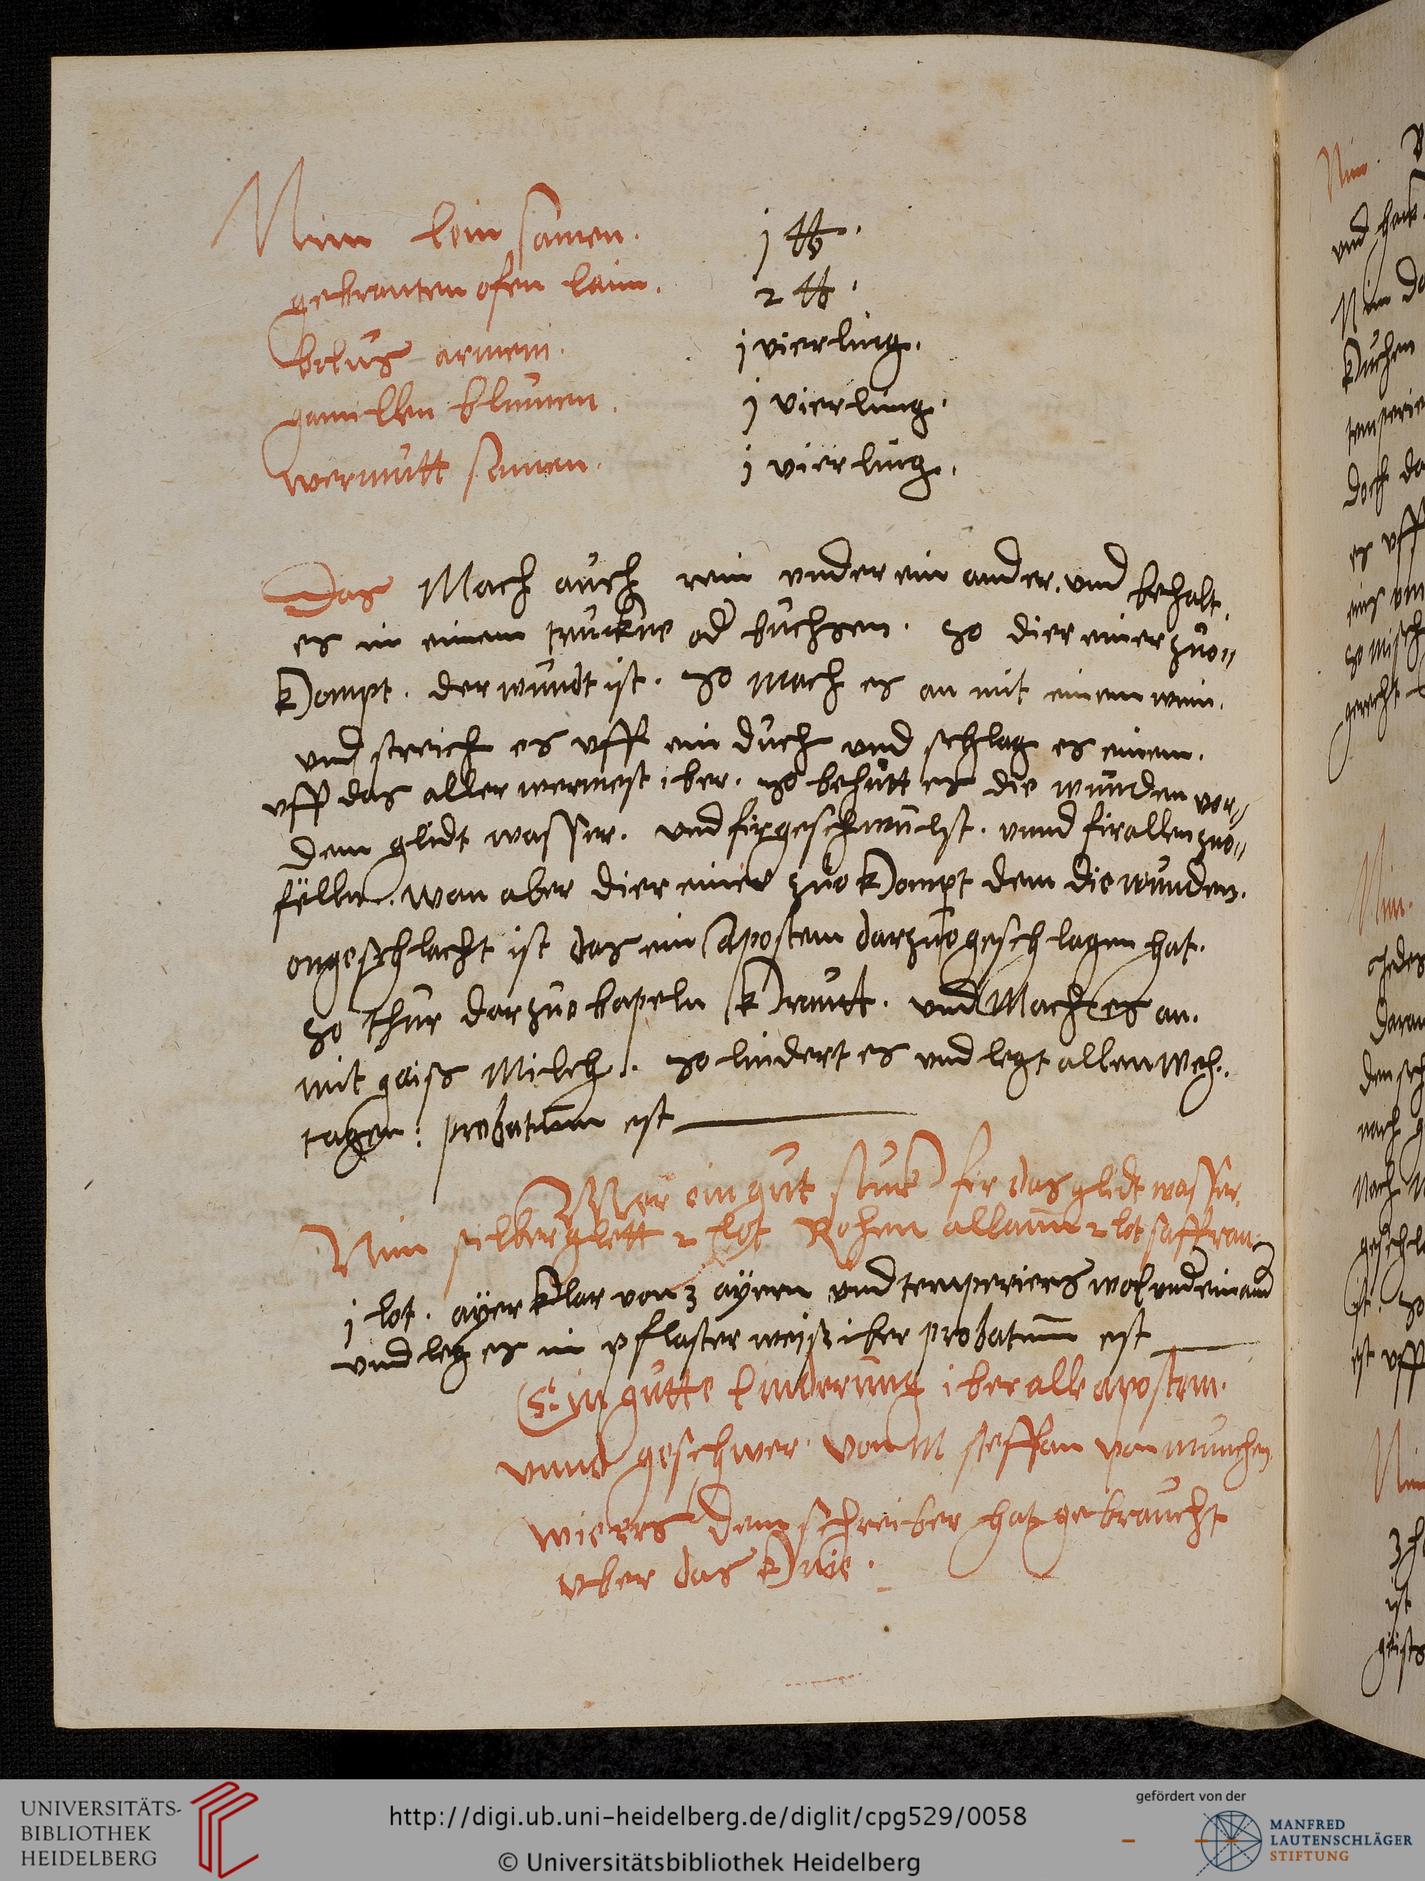 Nim lein samen. j ℔.
gebranten ofen laim. 2 ℔.
bolus armeni. j vierling.
gamillen blumen. j vierling.
wermutt samen. j vierling.
Das Mach auch rein under ein ander. und behalt.
es in einem truckne od buchsen. so dier einer zuo"
kompt. der wundt ist. so mach es an mit einem wein.
und streich es uff ein duch und schlag es einem.
uff das aller wermest iber. so behütt es die wunden vor"
dem glidt wasser. und fir geschwulst. unnd fir allen zuo"
fellen. wan aber dier einer zuo kompt dem die wunden.
ongeschlacht ist das ein Apostem darzuo geschlagen hat.
so thur darzuo bapeln krautt. und Mach es an.
mit gaiss Milch. so lindert es und legt allen weh.
tagen: probatum est
Mer ein gut stuck fir das glidt wasser.
Nim silberglett 2 lot Rohen allaun 2 lot saffran
j lot. ayer klar von 3 ayern und temperiers wol und ein and
und leg es in pflaster weiss iber probatum est
Ein gutte linderung iber alle apostem.
unnd geschwer. von M steffan von munchen
wie ers dem schreiber hat gebraucht
uber das knie.
Nim.
und
Nim
kuchen
doch da
es uff
gerecht
Nim.
Jedes
Daran
den
nach
Nach
ist. so
est uff
Nim
ist
UNIVERSITÄTS-
BIBLIOTHEK
HEIDELBERG
http://digi.ub.uni-heidelberg.de/diglit/cpg529/0058
© Universitätsbibliothek Heidelberg
gefördert von der
MANFRED
LAUTENSCHLÄGER
STIFTUNG